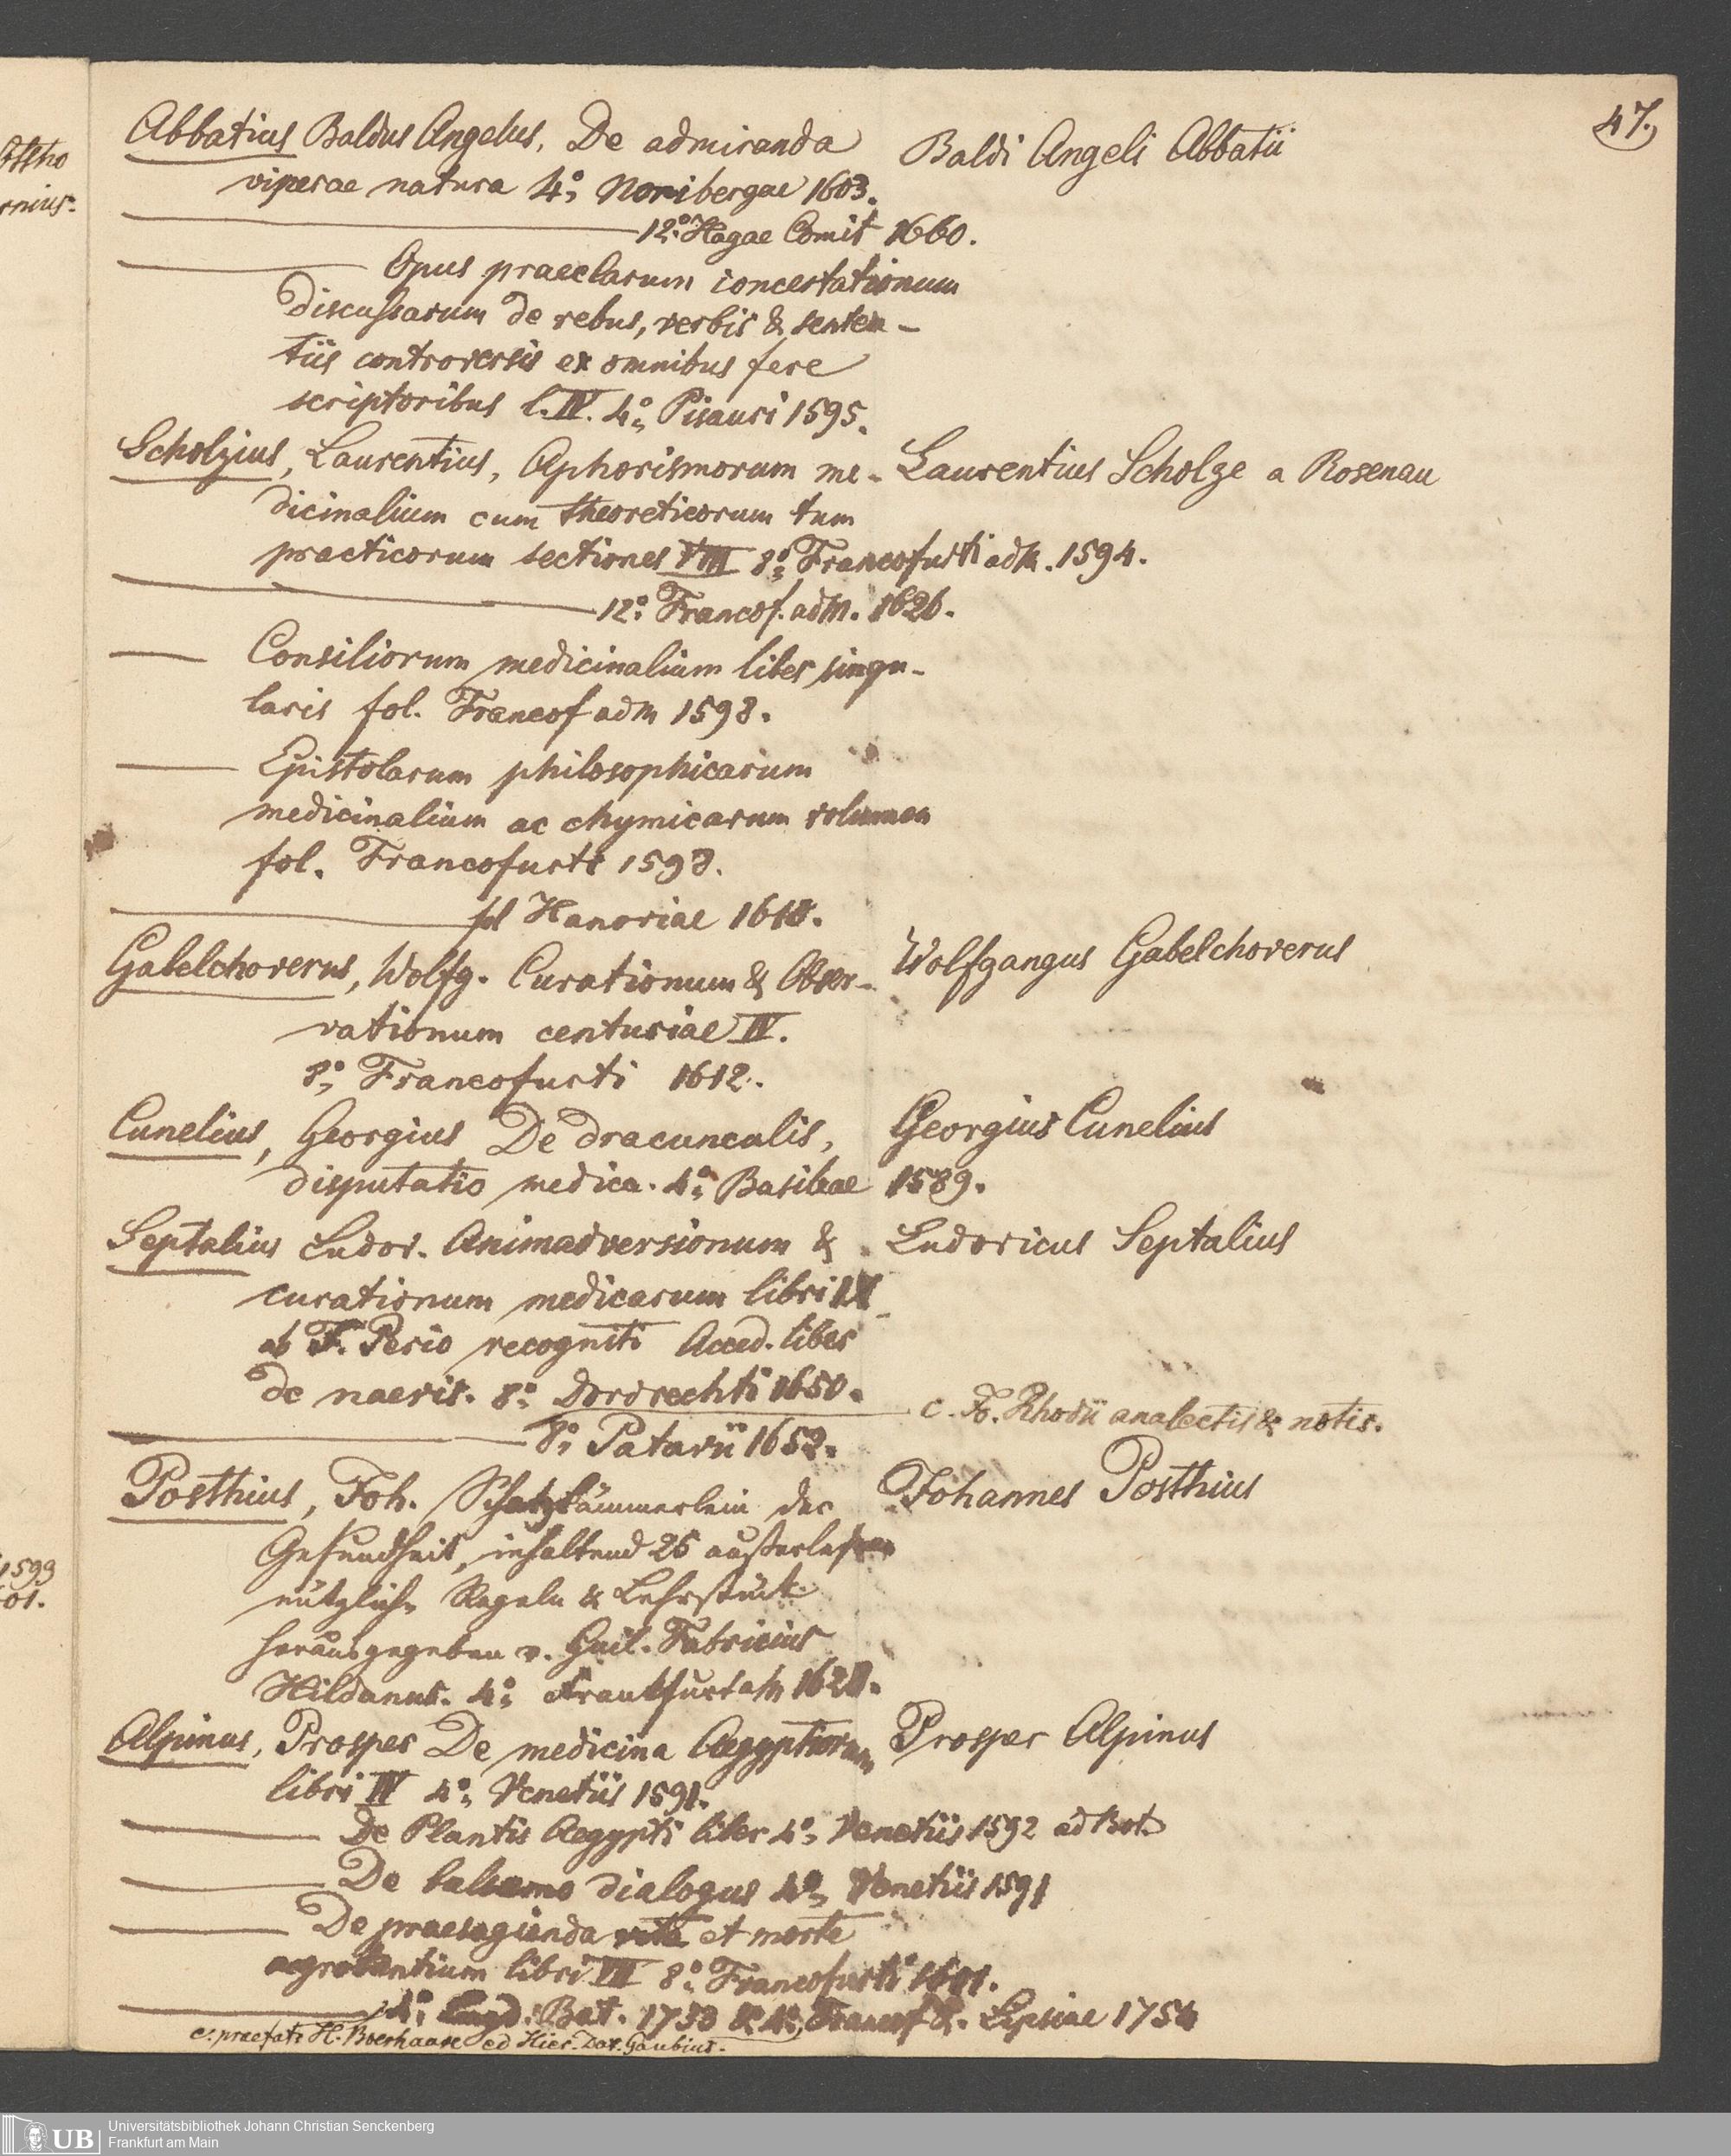 47.
Abbatius Baldus Angelus, De admiranda Baldi Angeli Abbatii
viperae natura 4°, Noribergae 1603.
12° Hagae Comit 1660.
Opus praeclarum concertationum
discussarum de rebus, verbis & senten-
tiis controversis ex omnibus fere
scriptoribus l. IV. 4°, Pisauri 1595.
Scholzius, Laurentius, Aphorismorum me- Laurentius Scholze a Rosenau
dicinalium cum theoreticorum tum
practicorum sectiones VIII 8°, Francofurti adM. 1594.
12° Francof. adM. 1626.
Consiliorum medicinalium liber singu-
laris fol. Francof adM 1598.
Epistolarum philosophicarum
medicinalium ac chymicarum volumen
fol. Francofurti 1598.
fol Hanoviae 1610.
Gabelchoverus, Wolfg. Curationum & Obser- Wolfgangus Gabelchoverus
vationum centuriae IV.
8°, Francofurti 1612.
Cunelius, Georgius De dracunculis, Georgius Cunelius
disputatio medica. 4°, Basileae 1589.
Septalius Ludov. Animadversionum & Ludovicus Septalius
curationum medicarum libri IX
ab F. Perio recogniti Acced. liber
de naevis. 8° Dordrechti 1650. c. Jo. Rhodii analectis & notis.
8°, Patavii 1652.
Posthius, Joh. Schatzkämmerlein der Johannes Posthius
Gesundheit, inhaltend 25 außerlesen
nützliche Regeln & Lehrstück
herausgegeben v. Guil. Fabricius
Hildanus. 4°, Frankfurt aM 1628.
Alpinus, Prosper De medicina Aegyptiorum Prosper Alpinus
libri IV 4°, Venetiis 1591.
De Plantis Aegypti liber 4°, Venetiis 1592 ad Bot.
De balsamo dialogus 4°, Venetiis 1591
De praesagienda vita et morte
aegrotantium libri VII 8°, Francofurti 1601.
4°, Lugd. Bat. 1733 & 4°, Francof & Lipsiae 1754
c. praefati H. Boerhaave ed Hier. Dav. Gaubius.
1599
Universitätsbibliothek Johann Christian Senckenberg
Frankfurt am Main
UB